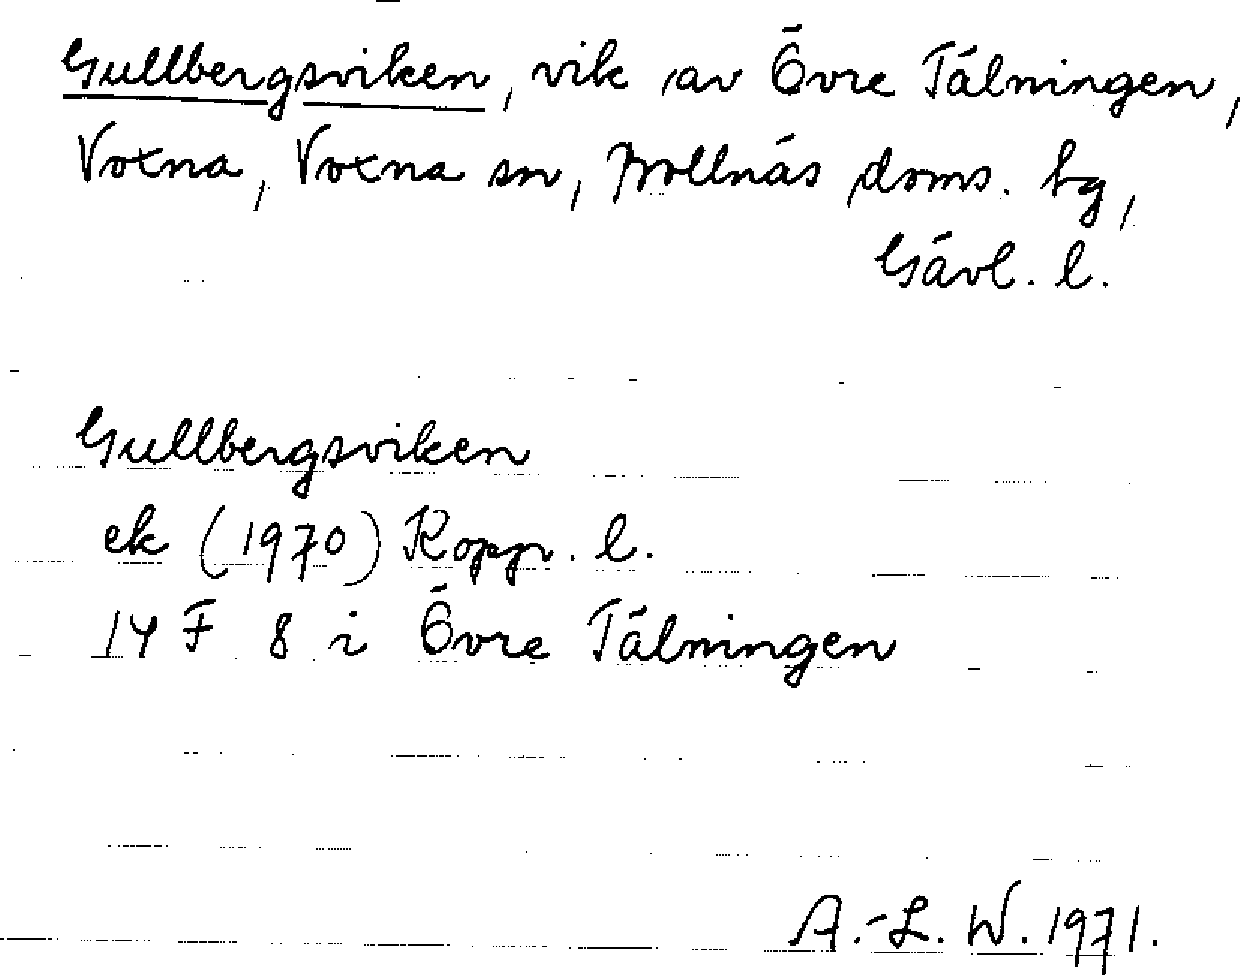 Gullbergsviken, vik av Övre Tälningen,
Voxna, Voxna sn, Bollnäs doms. tg,
Gävl. l.
Gullbergsviken
ek (1970) Kopp. l.
14 F 8 i Övre Tälningen
A.-L. W. 1971.